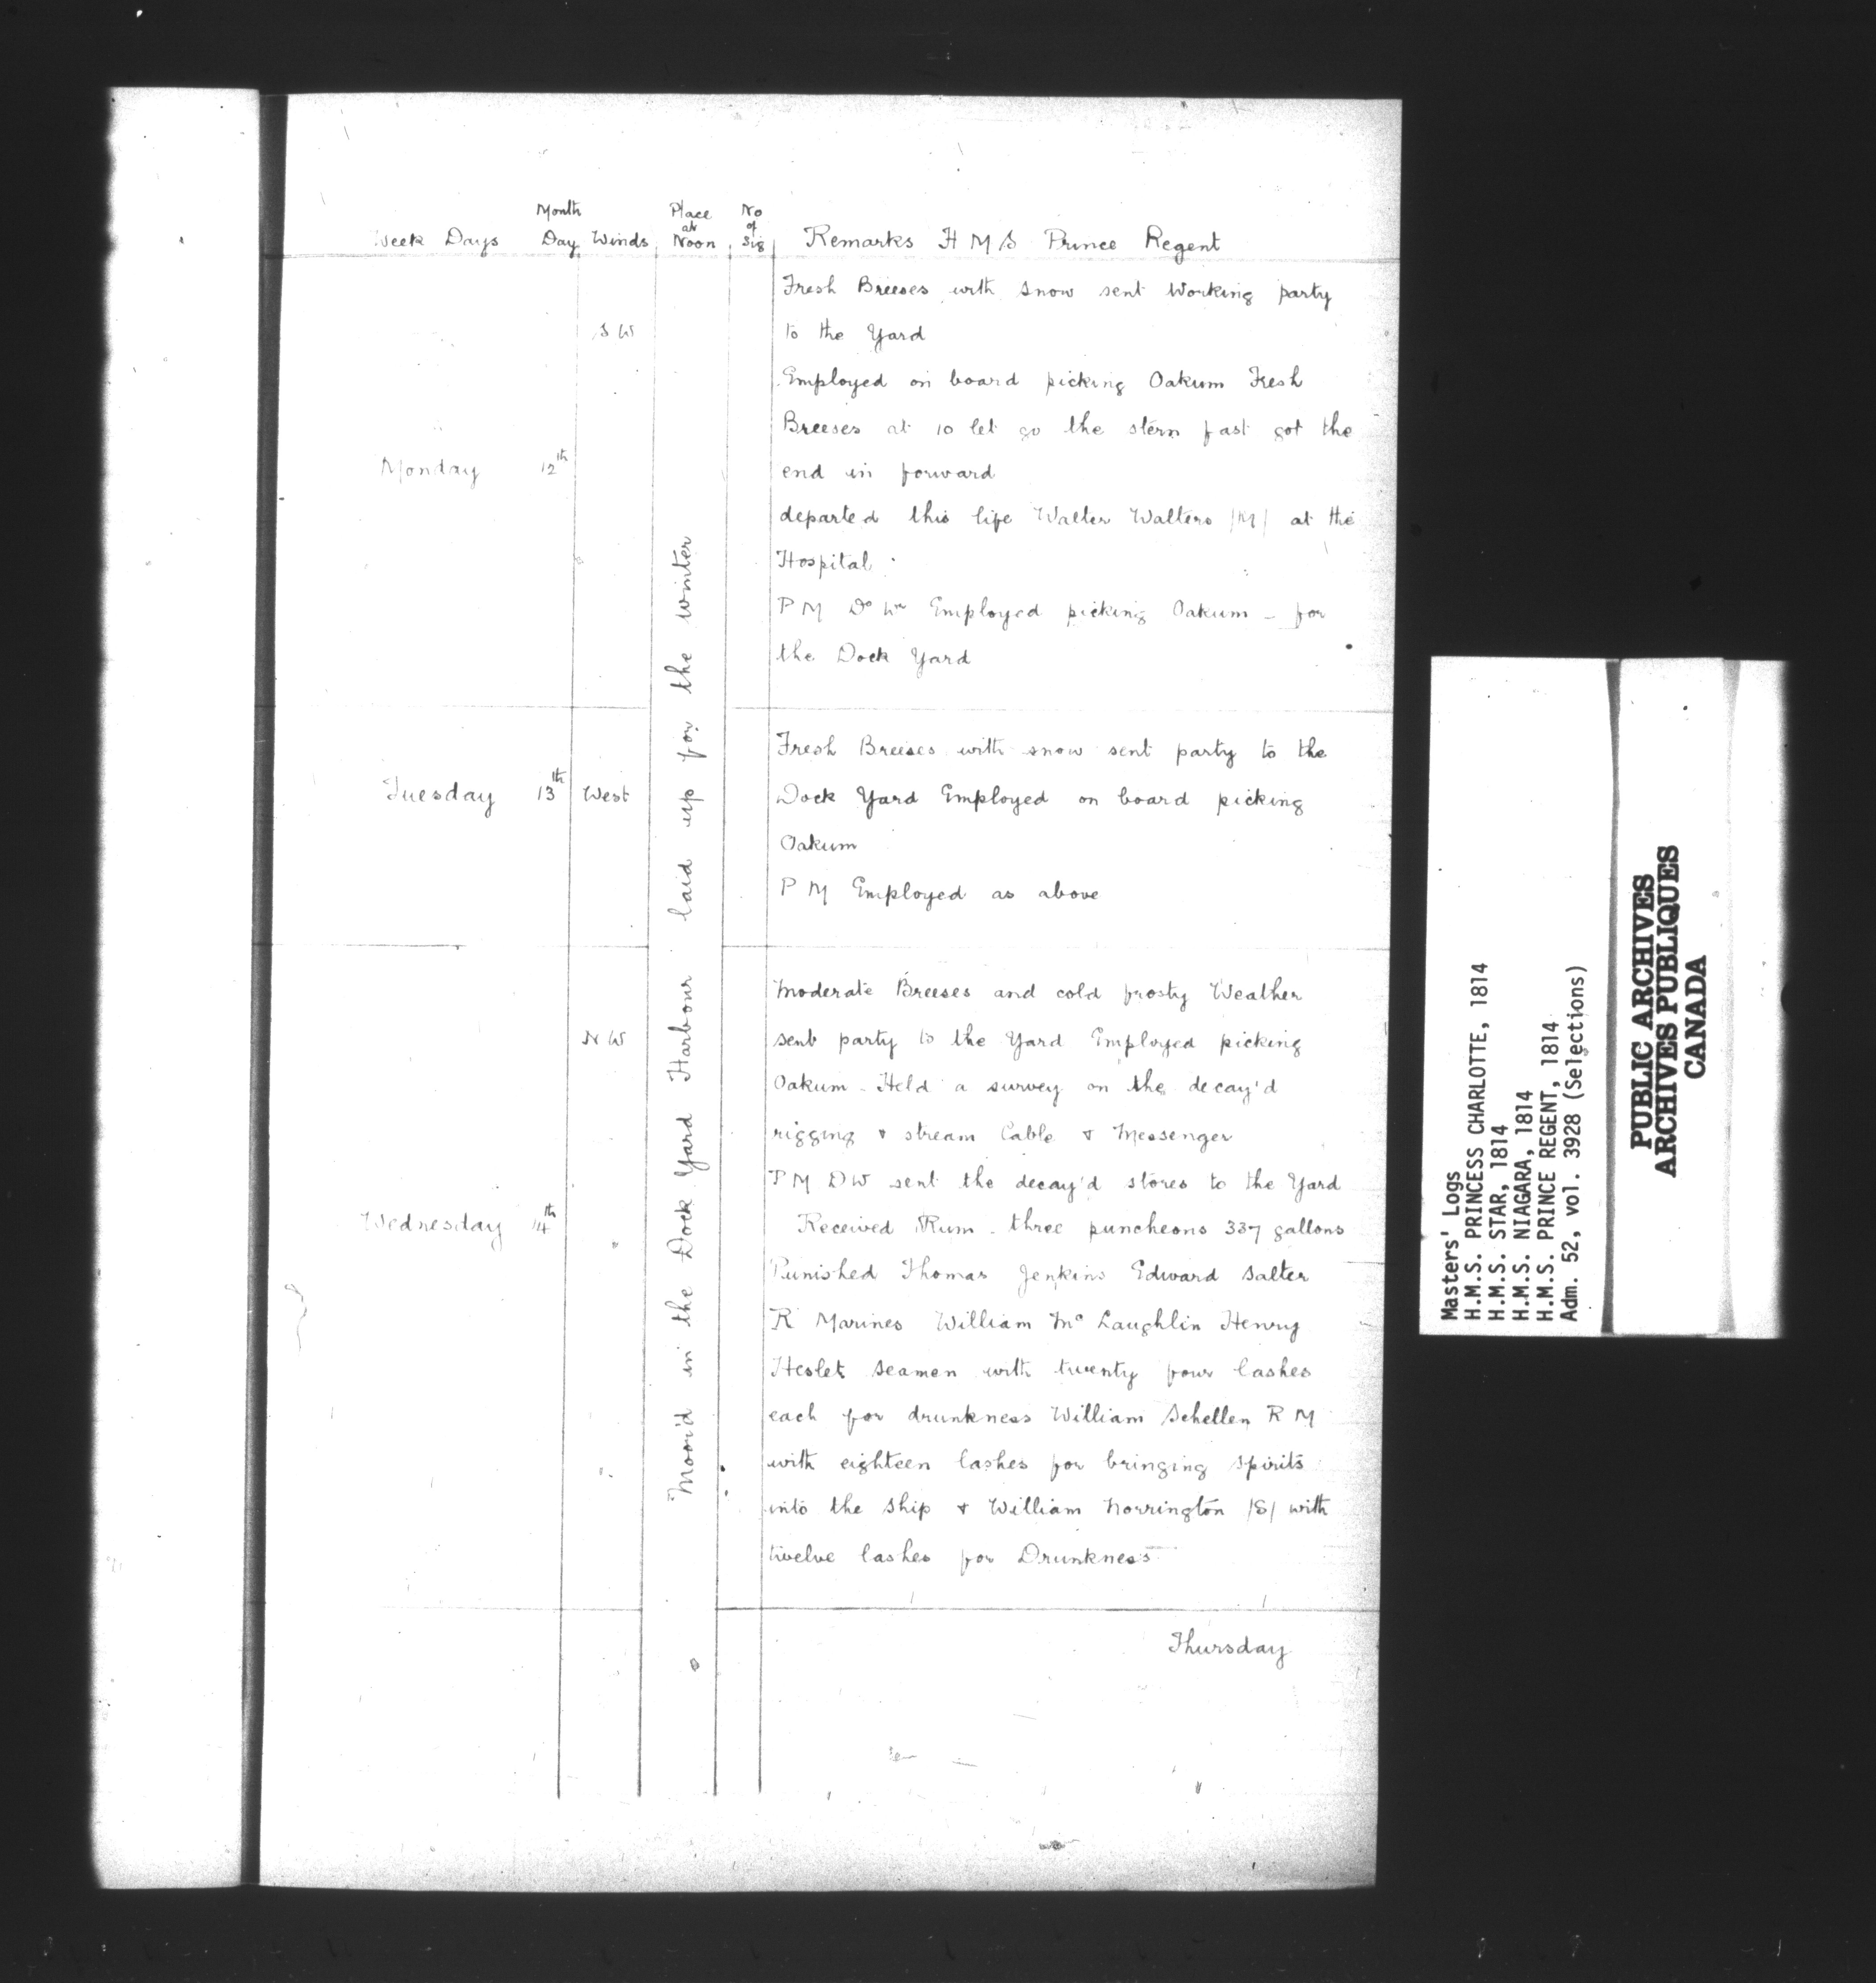 Week Days Month Day Winds Place at Noon No of Sig Remarks H M S Prince Regent
Fresh Breeses with snow sent Working party
S W to the Yard
Employed on board picking Oakum Fresh
Breeses at 10 let go the stern fast got the
Monday 12th end in forward
departed this life Walter Walters /M/ at the
Hospital
P M Do Wr Employed picking Oakum - for
the Dock Yard
Fresh Breeses with snow sent party to the
Tuesday 13th West Dock Yard Employed on board picking
Oakum
P M Employed as above
Moderate Breeses and cold frosty Weather
N W sent party to the Yard Employed picking
Oakum - Held a survey on the decay'd
rigging & stream Cable & Messenger
P M D W sent the decay'd stores to the Yard
Wednesday 14th Received Rum - three puncheons 337 gallons
Punished Thomas Jenkins Edward Salter
R Marines William Mc Laughlin Henry
Heslet seamen with twenty four lashes
each for drunkness William Schellen R M
with eighteen lashes for bringing spirits
into the ship & William Norrington /S/ with
twelve lashes for Drunkness
Thursday
Moor'd in the Dock Yard Harbour laid up for the winter
Masters' Logs
H.M.S. PRINCESS CHARLOTTE, 1814
H.M.S. STAR, 1814
H.M.S. NIAGARA, 1814
H.M.S. PRINCE REGENT, 1814
Adm. 52, vol. 3928 (Selections)
PUBLIC ARCHIVES
ARCHIVES PUBLIQUES
CANADA